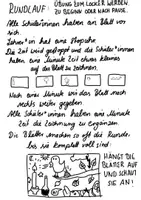 RUNDLAUF: ÜBUNG ZUM LOCKER WERDEN.
ZU BEGINN ODER NACH PAUSE.
Alle Schüler*innen haben ein Blatt vor
sich.
Lehrer*in hat eine Stopuhr.
Die Zeit wird gestoppt und die Schüler*innen
haben eine Minute Zeit etwas kleines
auf das Blatt zu zeichnen.
Nach einer Minute wird das Blatt nach
rechts weiter gegeben
Alle Schüler*innen haben eine Minute
Zeit die Zeichnung zu ergänzen
Die Blätter machen so oft die Runde,
bis sie komplett voll sind.
HÄNGT DIE
BLÄTTER AUF
UND SCHAUT
SIE AN!